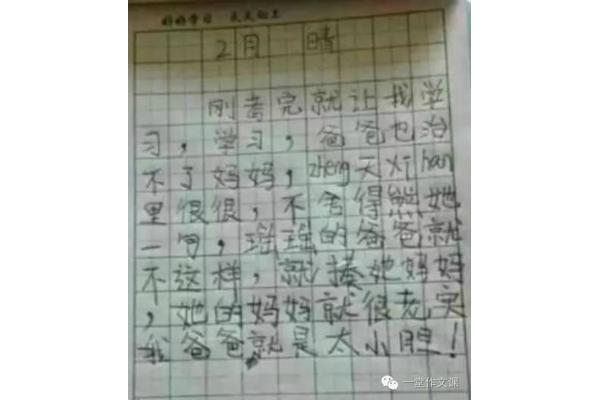 好好学习 天天向上
2月 晴
刚考完就让我学
习，学习，爸爸也治
不了妈妈，zheng天xi han
里很很，不舍得熊她
一句，瑶瑶的爸爸就
不这样，就揍她妈妈
，她的妈妈就很老实
我爸爸就是太小胆！
一堂作文课